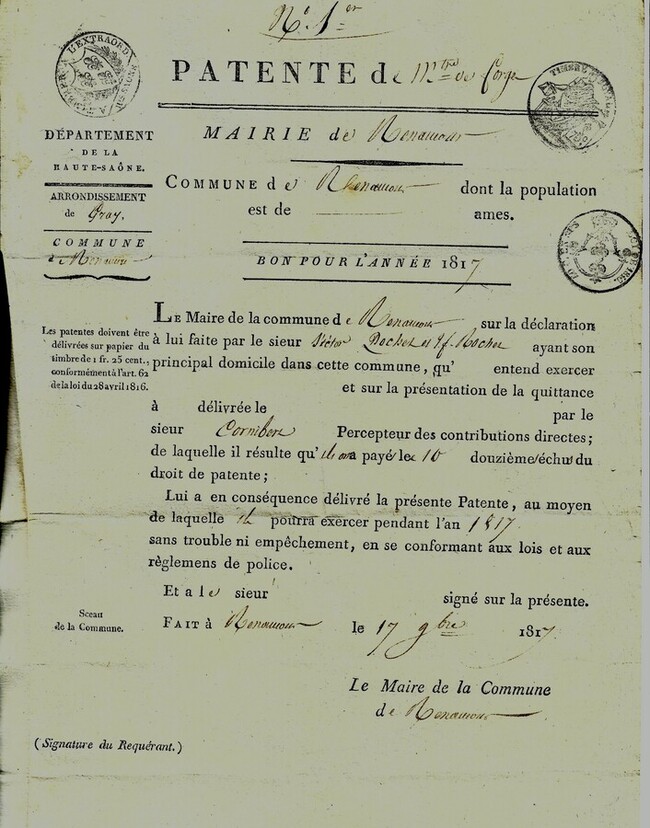 N.º 1.er
PATENTE de M.tre de Forge
MAIRIE de Renaucourt
COMMUNE de Renaucourt dont la population
est de ames.
BON POUR L'ANNÉE 1817
DÉPARTEMENT
DE LA
HAUTE-SAÔNE.
ARRONDISSEMENT
de Gray.
COMMUNE
Les patentes doivent être
délivrées sur papier du
timbre de 1 fr. 25 cent.,
conformément à l'art. 62
de la loi du 28 avril 1816.
LE Maire de la commune de Renaucourt sur la déclaration
à lui faite par le sieur Rochet et Rochet ayant son
principal domicile dans cette commune, qu' entend exercer
et sur la présentation de la quittance
à délivrée le par le
sieur Percepteur des contributions directes;
de laquelle il résulte qu' payé les 10 douzième échus du
droit de patente;
Lui a en conséquence délivré la présente Patente, au moyen
de laquelle il pourra exercer pendant l'an 1817
sans trouble ni empêchement, en se conformant aux lois et aux
règlemens de police.
Et a le sieur signé sur la présente.
Sceau
de la Commune.
FAIT à Renaucourt le 17 9bre 1817
Le Maire de la Commune
de Renaucourt
(Signature du Requérant.)